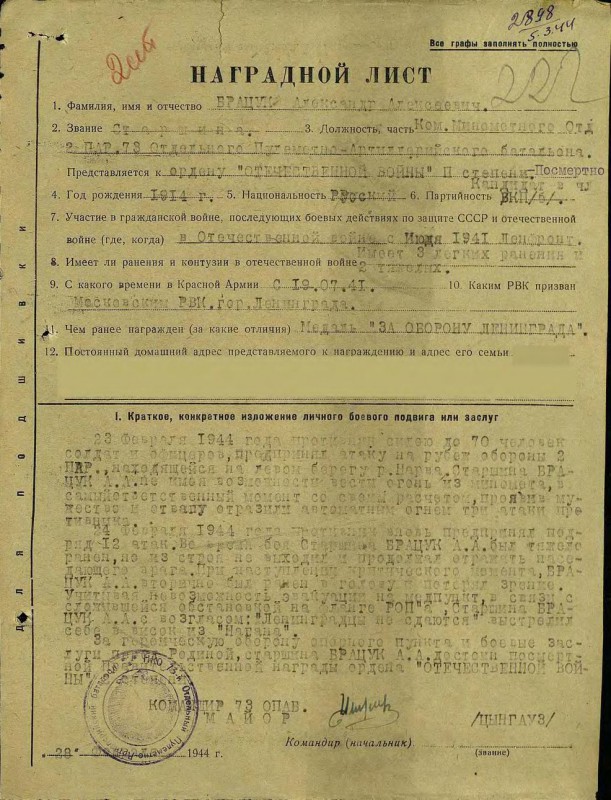 2898
5.3.44
Все графы заполнять полностью
НАГРАДНОЙ ЛИСТ
1. Фамилия, имя и отчество БРАЦУК Александр Алексеевич.
2. Звание Старшина. 3. Должность, часть Ком.Минометного Отд
2 ПАР.73 Отдельного Пулеметно-Артиллерийского батальона.
Представляется к ордену "ОТЕЧЕСТВЕННОЙ ВОЙНЫ" П степени/Посмертно
Кандидат в чл
4. Год рождения 1914 г. 5. Национальность Русский 6. Партийность ВКП/б/.
7. Участие в гражданской войне, последующих боевых действиях по защите СССР и отечественной
войне (где, когда) в Отечественной войне с Июля 1941 Ленфронт.
Имеет 3 легких ранения и
8. Имеет ли ранения и контузии в отечественной войне 2 тяжелых.
9. С какого времени в Красной Армии С 19.07.41. 10. Каким РВК призван
Масковским РВК.гор.Ленинграда.
11. Чем ранее награжден (за какие отличия) Медаль "ЗА ОБОРОНУ ЛЕНИНГРАДА".
12. Постоянный домашний адрес представляемого к награждению и адрес его семьи
Для подшивки
I. Краткое, конкретное изложение личного боевого подвига или заслуг
23 Февраля 1944 года противник силою до 70 человек
солдат и офицеров, предпринял атаку на рубеж обороны 2
ПАР., находящейся на левом берегу г.Нарва. Старшина БРА-
ЦУК А.А. не имея возможности вести огонь из миномета, в
самый ответственный момент со своим расчетом, проявив му-
жество и отвагу отразили автоматным огнем три атаки про-
тивника.
24 Февраля 1944 года противник вновь предпринял под-
ряд 12 атак. Во время боя Старшина БРАЦУК А.А. был тяжело
ранен, но из строя не выходил и продолжал отражать насе-
дающего врага. При наступлении критического момента, БРА-
ЦУК А.А. вторично был ранен в голову и потерял зрение.
Учитывая невозможность эвакуации на медпункт, в связи с
сложившейся обстановкой на фланге РОП"а, Старшина БРА-
ЦУК А.А. с возгласом: "Ленинградцы не сдаются" выстрелил
себе в висок из "Нагана".
За героическую оборону опорного пункта и боевые зас-
луги Родиной, старшина БРАЦУК А.А. достоин посмерт-
ной Правительственной награды ордена "ОТЕЧЕСТВЕННОЙ ВОЙ-
НЫ"
КОМАНДИР 73 ОПАБ.
МАЙОР /ЦЫНГАУЗ/
Командир (начальник) (звание)
"28" 1944 г.